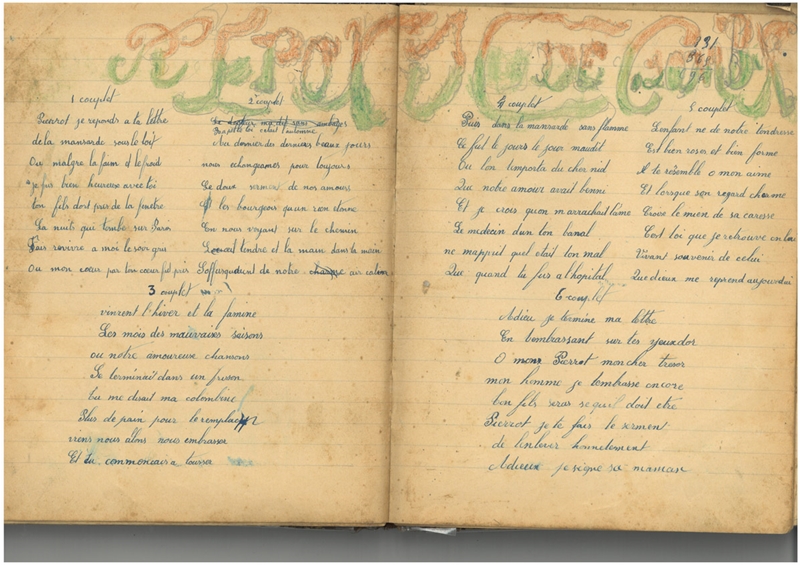 REPONSE DE COLOMBINE
191
1 couplet
Pierrot je reponds a ta lettre
de la mansarde sous le toit
Ou malgre la faim et le froid
je fus bien heureux avec toi
ton fils dort pres de la fenetre
La nuit qui tombe sur Paris
Fais revivre a moi le soir gris
Ou mon cœur par ton cœur fut pris
2 couplet
Le docteur ma dit sans ambages
Rapelle toi cetait l'automne
Au dernier des derniers beaux jours
nous echangeames pour toujours
Le doux serment de nos amours
les bourgeois qu'un rien etonne
En nous voyant sur le chemin
L'œil tendre et la main dans la main
S'offusquaient de notre air calin
3 couplet
vinrent l'hiver et la famine
Les mois des mauvaises saisons
ou notre amoureuse chansons
Se terminait dans un frisson
tu me disait ma colombine
Plus de pain pour le remplacer
viens nous alons nous embrasser
Et tu commencais a tousser
4 couplet
Puis dans la mansarde sans flamme
Ce fut le jours le jour maudit
Ou l'on t'emporta du cher nid
Que notre amour avait beni
Et je crois quon m'arrachait l'ame
Le medecin d'un ton banal
ne mapprit quel etait ton mal
Que quand tu fus a l'hopital
5 couplet
L'enfant ne de notre tendresse
Est bien roses et bien forme
Il te resemble o mon aime
Et lorsque son regard charme
Croise le mien de sa caresse
C'est toi que je retrouve en lui
Vivant souvenir de celui
Que dieux me reprend aujourdui
6 couplet
Adieu je termine ma lettre
En t'embrassant sur tes yeux dor
O mon Pierrot mon cher tresor
mon homme je t'embrasse encore
ton fils seras se quil doit etre
Pierrot je te fais le serment
de l'enlever honnetement
Adieux je signe sa maman